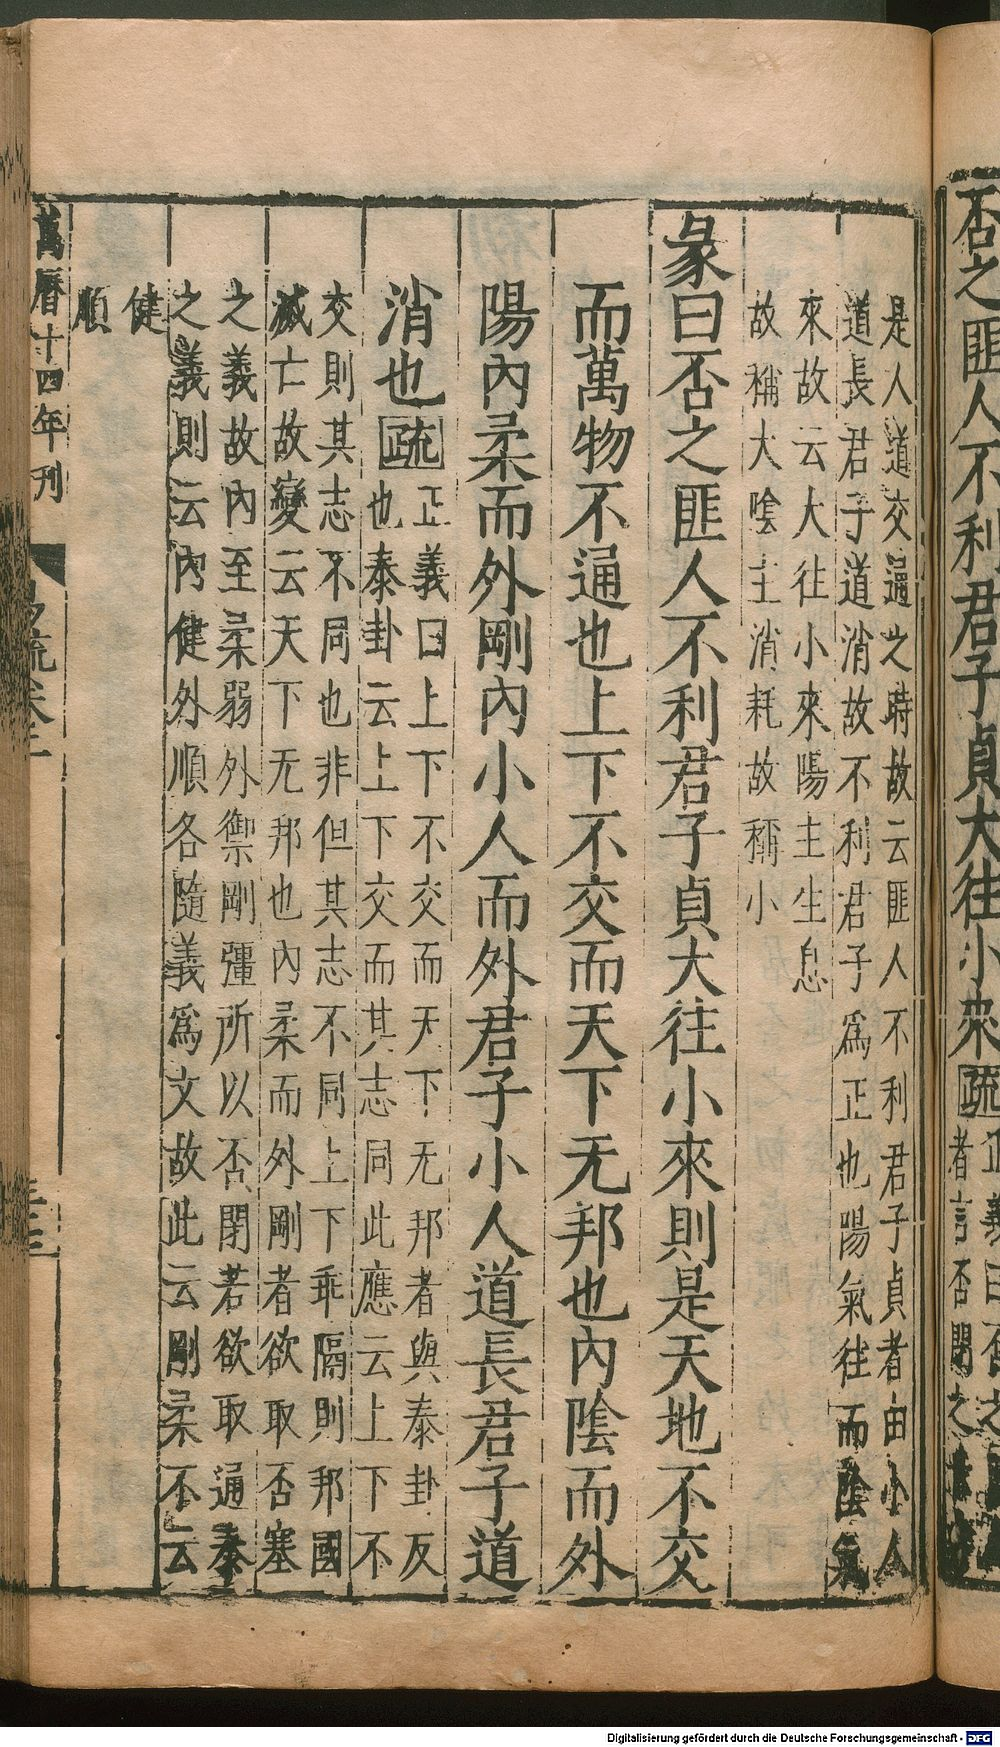 否之匪人不利君子貞大往小來疏
正義曰否之
者言否閉之
是人道交通之時故云匪人不利君子貞者由小人
道長君子道消故不利君子爲正也陽氣往而隂氣
來故云大往小來陽主生息
故稱大隂主消耗故稱小
彖曰否之匪人不利君子貞大往小來則是天地不交
而萬物不通也上下不交而天下无邦也内隂而外
陽内柔而外剛内小人而外君子小人道長君子道
消也疏
正義曰上下不交而天下无邦者與泰卦反
也泰卦云上下交而其志同此應云上下不
交則其志不同也非但其志不同上下乖隔則邦國
滅亡故變云天下无邦也内柔而外剛者欲取否塞
之義故内至柔弱外禦剛彊所以否閉若欲取通泰
之義則云内健外順各隨義爲文故此云剛柔不云
健
順
萬曆十四年刊
易疏卷二
Digitalisierung gefördert durch die Deutsche Forschungsgemeinschaft - DFG